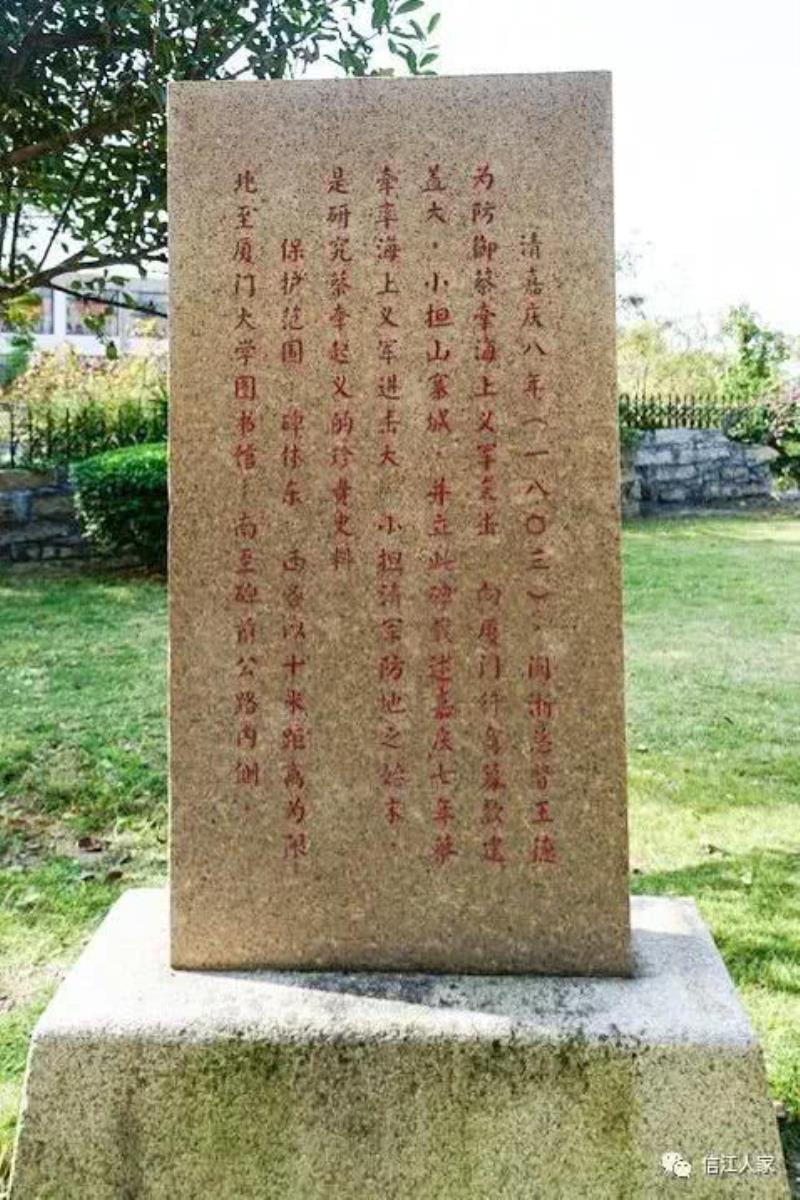 清嘉庆八年（一八〇三），闽浙总督玉德
为防御蔡牵海上义军袭击 向厦门行商募款建
盖大，小担山寨城，并立此碑载述嘉庆七年蔡
牵率海上义军进击大 小担清军防地之始末，
是研究蔡牵起义的珍贵史料
保护范围 碑体东 西各以十米距离为限
北至厦门大学图书馆，南至碑前公路内侧，
信江人家